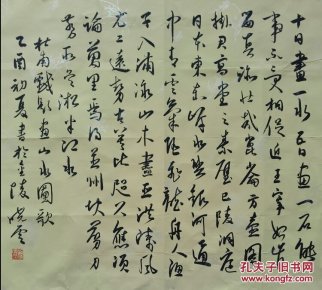 十日畫一水五日畫一石能
事不受相促迫王宰始肯
留真跡壮哉崑崙方壺圖
掛君高堂之素壁巴陵洞庭
日本東赤岸水與銀河通
中有雲氣隨飛龍舟人漁
子入浦溆山木盡亞洪濤風
尤工遠勢古莫比咫尺應須
論萬里焉得并州快剪刀
剪取吳淞半江水
杜甫戲題畫山水圖歌
乙酉初夏書於金陵
孔夫子旧书网